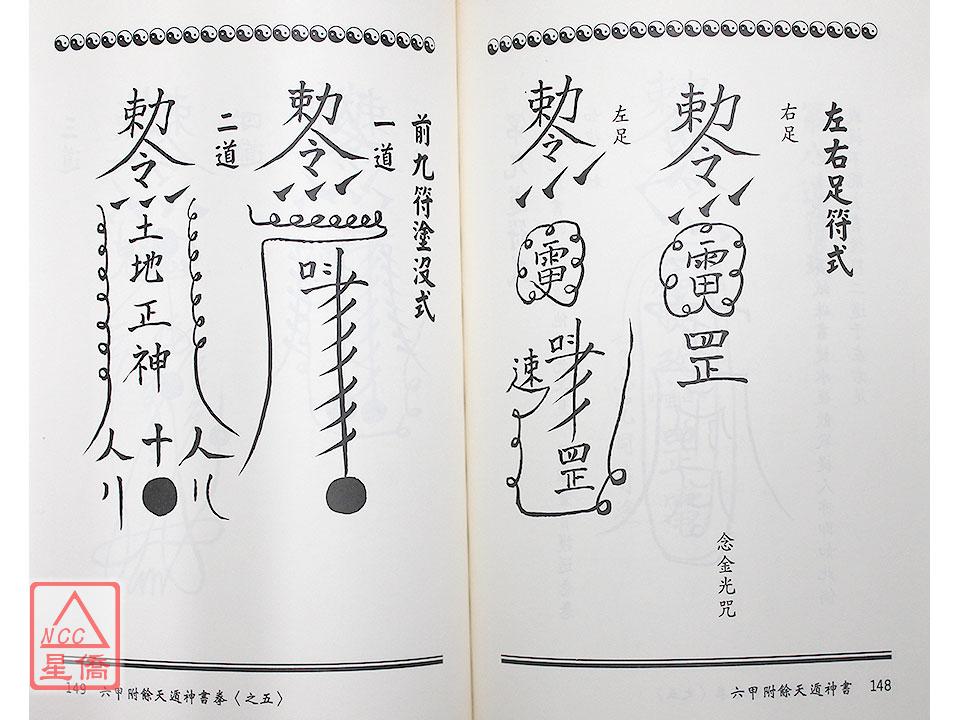 左右足符式
右足
勅令
罡
念金光咒
左足
勅令
速
罡
六甲附餘天遁神書
148
前九符塗沒式
一道
勅令
二道
勅令
土地正神
人十人
149
六甲附餘天遁神書拳〈之五〉
NCC
星僑